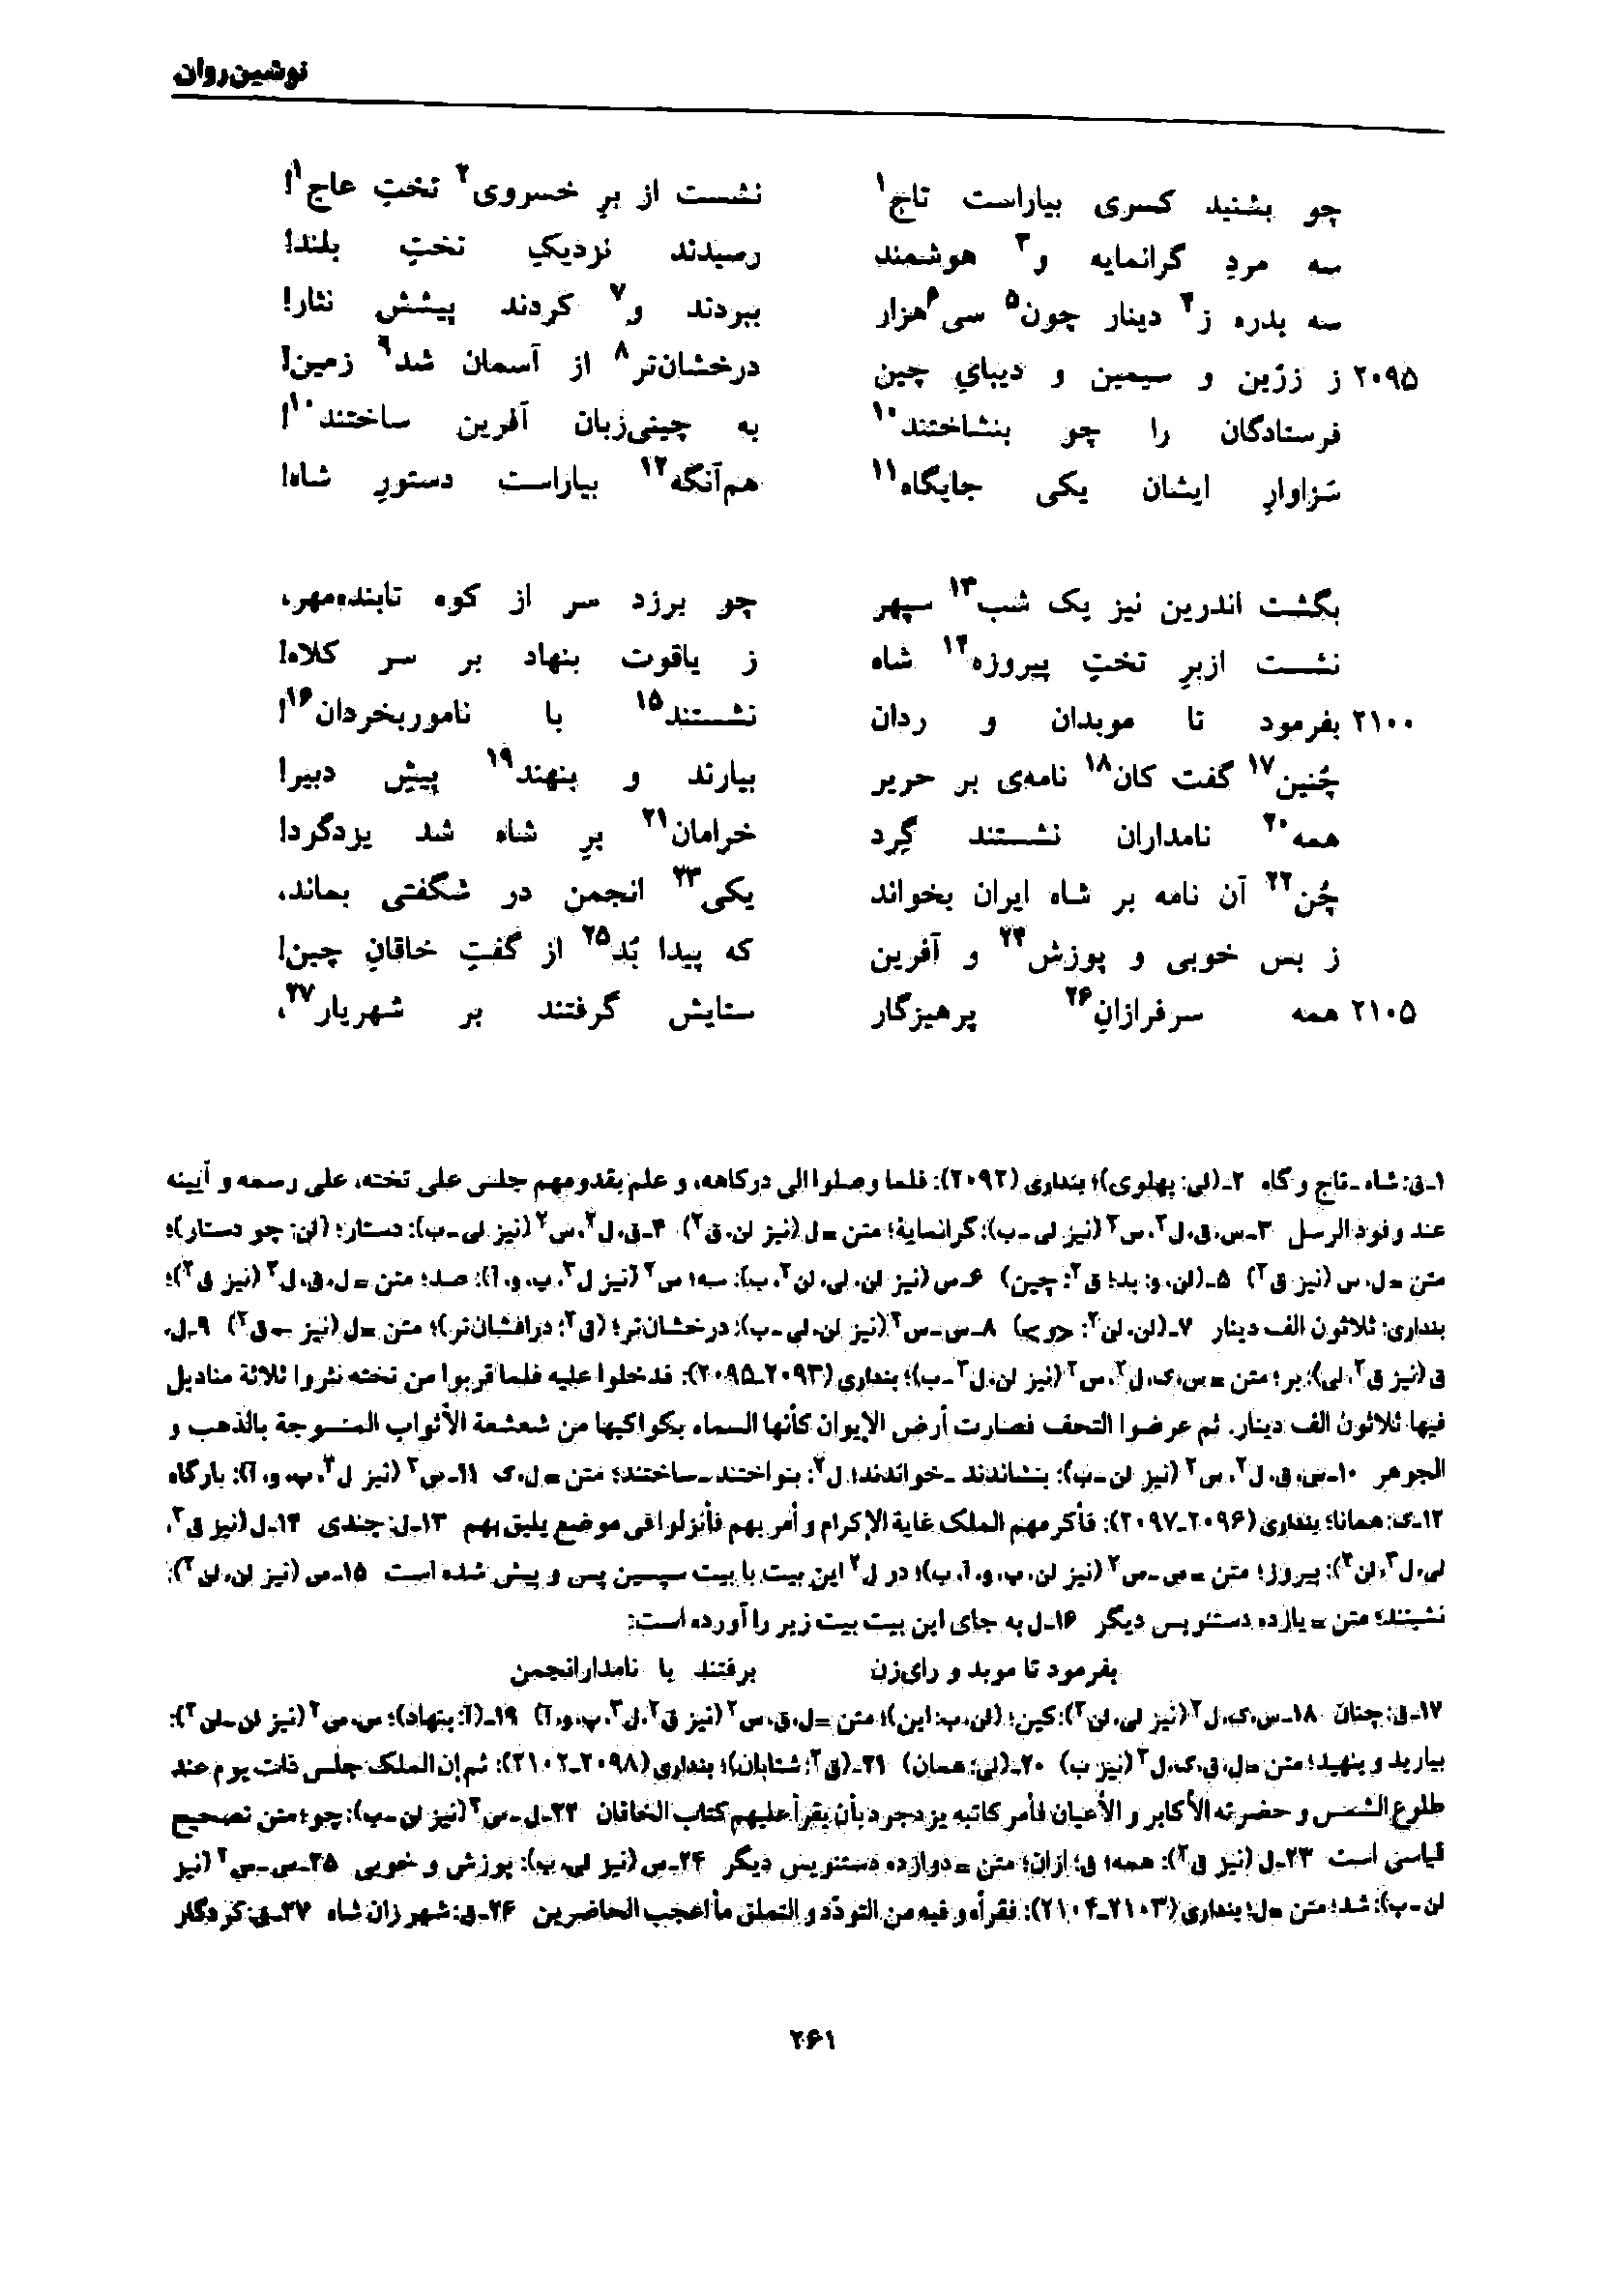 نوشین‌روان
چو بشنید کسری بیاراست تاج۱ نشست از برِ خسروی۲ تختِ عاج۱!
سه مردِ گرانمایه و۳ هوشمند رسیدند نزدیکِ تختِ بلند!
سه بدره ز۴ دینار چون۵ سی۶هزار ببردند و۷ کردند پیشش نثار!
۲۰۹۵ ز زرّین و سیمین و دیبایِ چین درخشان‌تر۸ از آسمان شد۹ زمین!
فرستادگان را چو بنشاختند۱۰ به چینی‌زبان آفرین ساختند۱۰!
سَزاوارِ ایشان یکی جایگاه۱۱ هم‌آنگه۱۲ بیاراست دستورِ شاه!
بگشت اندرین نیز یک شب۱۳ سپهر چو برزد سر از کوه تابنده‌مهر،
نشست ازبرِ تختِ پیروزه۱۴ شاه ز یاقوت بنهاد بر سر کلاه!
۲۱۰۰ بفرمود تا موبدان و ردان نشستند۱۵ با ناموربخردان۱۶!
چُنین۱۷ گفت کان۱۸ نامه‌ی بر حریر بیارند و بنهند۱۹ پیشِ دبیر!
همه۲۰ نامداران نشستند گِرد خرامان۲۱ برِ شاه شد یزدگرد!
چُن۲۲ آن نامه بر شاه ایران بخواند یکی۲۳ انجمن در شگفتی بماند،
ز بس خوبی و پوزش۲۴ و آفرین که پیدا بُد۲۵ از گفتِ خاقانِ چین!
۲۱۰۵ همه سرفرازانِ۲۶ پرهیزگار ستایش گرفتند بر شهریار۲۷،
۱ـ ق: شاه ـ تاج و گاه ۲ـ (لی: پهلوی)؛ بنداری (۲۰۹۲): فلما وصلوا الی درکاهه، و علم بقدومهم جلس علی تخته، علی رسمه و آیینه
عند وفود الرسل ۳ـ س، ق، ل۲، س۲ (نیز لی ـ ب): گرانمایهٔ؛ متن = ل (نیز لن، ق۲) ۴ـ ق، ل۲، س۲ (نیز لی ـ ب): دستار؛ (لن: چو دستار)؛
متن = ل، س (نیز ق۲) ۵ـ (لن، و: بد؛ ق۲: چین) ۶ـ س (نیز لن، لی، لن۲، ب): سه؛ س۲ (نیز ل۳، پ، و، آ): صد؛ متن = ل، ق، ل۲ (نیز ق۲)؛
بنداری: ثلاثون الف دینار ۷ـ (لن، لن۲: <و>) ۸ـ س ـ س۲ (نیز لن، لی ـ ب): درخشان‌تر؛ (ق۲: درافشان‌تر)؛ متن = ل (نیز ← ق۲) ۹ـ ل،
ق (نیز ق۲، لی): بر؛ متن = س، ک، ل۲، س۲ (نیز لن، ل۳ ـ ب)؛ بنداری (۲۰۹۳ـ۲۰۹۵): فدخلوا علیه فلما قربوا من تخته نثروا ثلاثة منادیل
فیها ثلاثون الف دینار. ثم عرضوا التحف فصارت أرض الإیوان کأنها السماء بکواکبها من شعشعة الأثواب المنسوجة بالذهب و
الجوهر ۱۰ـ س، ق، ل۲، س۲ (نیز لن ـ ب): بنشاندند ـ خواندند؛ ل۲: بنواختند ـ ساختند؛ متن = ل، ک ۱۱ـ س۲ (نیز ل۳، پ، و، آ): بارگاه
۱۲ـ ک: همانا؛ بنداری (۲۰۹۶ـ۲۰۹۷): فأکرمهم الملک غایة الإکرام و أمر بهم فأنزلوا فی موضع یلیق بهم ۱۳ـ ل: چندی ۱۴ـ ل (نیز ق۲،
لی، ل۳، لن۲): پیروز؛ متن = س ـ س۲ (نیز لن، پ، و، آ، ب)؛ در ل۲ این بیت با بیت سپسین پس و پیش شده است ۱۵ـ س (نیز لن، لن۲):
نشینند؛ متن = یازده دستنویس دیگر ۱۶ـ ل به جای این بیت بیت زیر را آورده است:
بفرمود تا موبد و رای‌زن برفتند با نامدارانجمن
۱۷ـ ق: چنان ۱۸ـ س، ک، ل۲ (نیز لی، لن۲): کین؛ (لن، ب: این)؛ متن = ل، ق، س۲ (نیز ق۲، ل۳، پ، و، آ) ۱۹ـ (آ: بنهاد)؛ س، س۲ (نیز لن ـ لن۲):
بیارید و بنهید؛ متن = ل، ق، ک، ل۲ (نیز ب) ۲۰ـ (لی: همان) ۲۱ـ (ق۲: شتابان)؛ بنداری (۲۰۹۸ـ۲۱۰۲): ثم إن الملک جلس ذات یوم عند
طلوع الشمس و حضرته الأکابر و الأعیان فأمر کاتبه یزدجرد بأن یقرأ علیهم کتاب الخاقان ۲۲ـ ل ـ س۲ (نیز لن ـ ب): چو؛ متن تصحیح
قیاسی است ۲۳ـ ل (نیز ق۲): همه؛ ق: ازان؛ متن = دوازده دستنویس دیگر ۲۴ـ س (نیز لی، ب): پوزش و خوبی ۲۵ـ س ـ س۲ (نیز
لن ـ ب): شد؛ متن = ل؛ بنداری (۲۱۰۳ـ۲۱۰۴): فقرأه و فیه من التودّد و التملق ما أعجب الحاضرین ۲۶ـ ق: شهر زان شاه ۲۷ـ ق: کردگار
۲۶۱